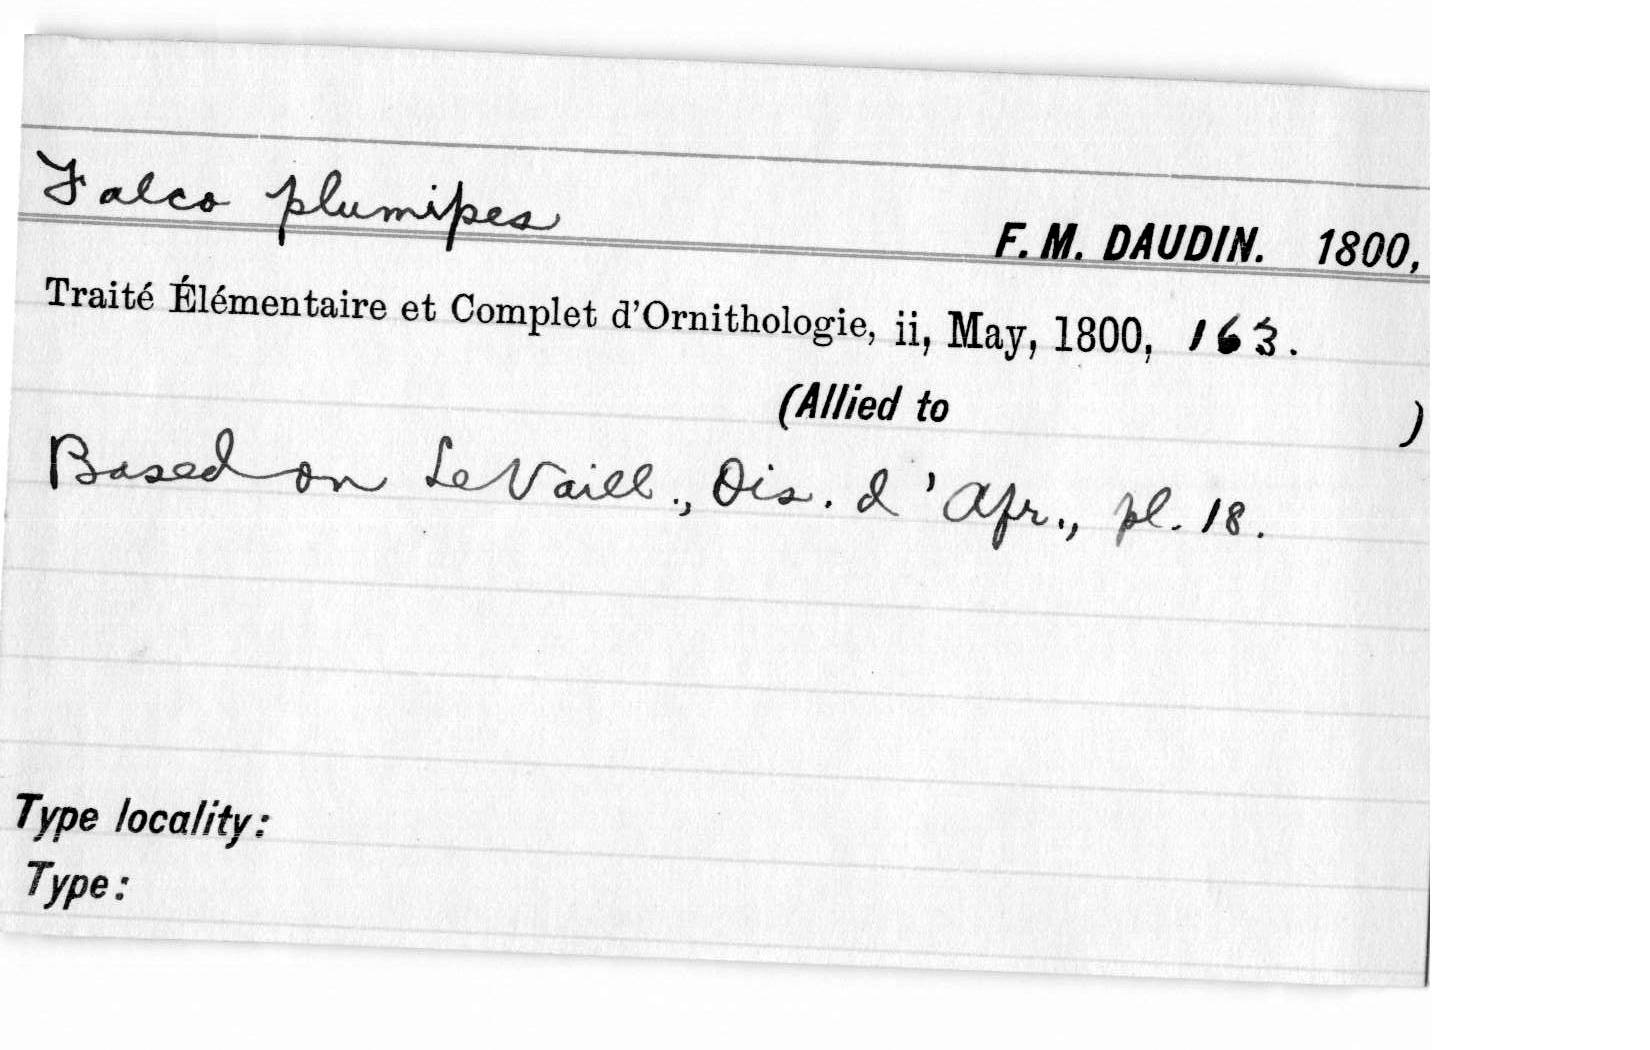 Falco plumipes
F. M. DAUDIN. 1800,
Traité Élémentaire et Complet d'Ornithologie, ii, May, 1800, 163.
(Allied to )
Based on Le Vaill., Ois. d'Afr., pl. 18.
Type locality:
Type: